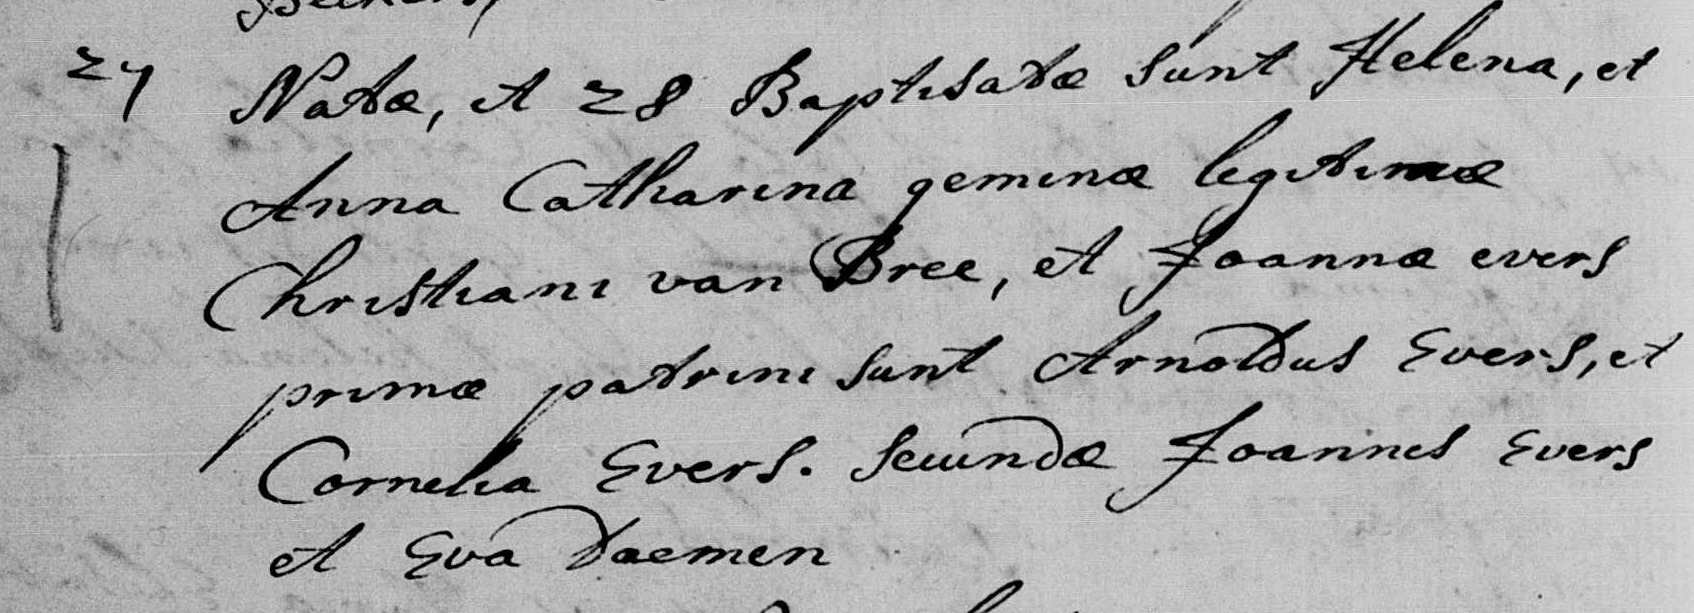 27 Natæ, et 28 Baptisatæ sunt Helena, et
Anna Catharina geminæ legitimæ
Christiani van Bree, et Joannæ evers
primæ patrini sunt Arnoldus Evers, et
Cornelia Evers. secundæ Joannes Evers
et Eva Daemen